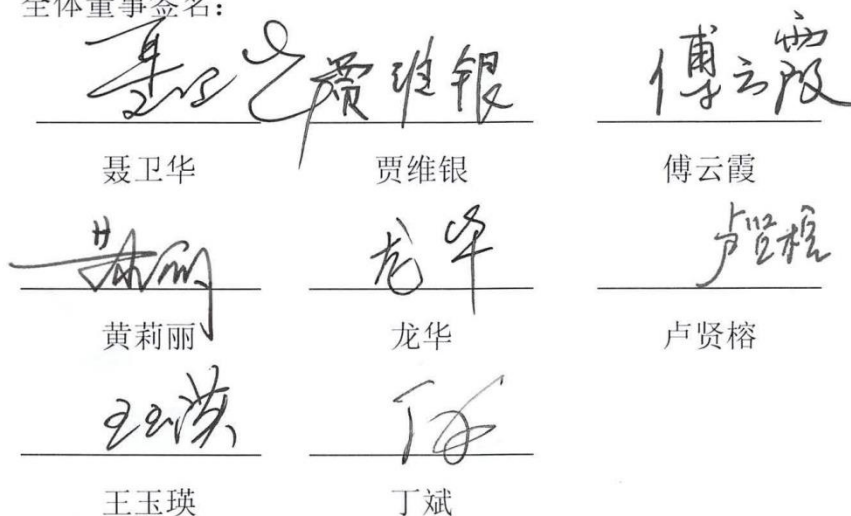 全体董事签名：
聂卫华 贾维银 傅云霞
聂卫华 贾维银 傅云霞
黄莉丽 龙华 卢贤榕
黄莉丽 龙华 卢贤榕
王玉瑛 丁斌
王玉瑛 丁斌